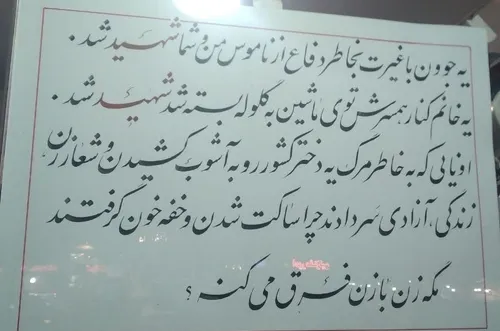 یه جوون باغیرت بخاطر دفاع از ناموس من و شما شهید شد.
یه خانم کنار همسرش توی ماشین به گلوله بسته شد شهید شد.
اونایی که به خاطر مرگ یه دختر کشور رو به آشوب کشیدن و شعار زن
زندگی، آزادی سر دادند چرا ساکت شدن و خفه خون گرفتند
مگه زن با زن فرق می کنه؟